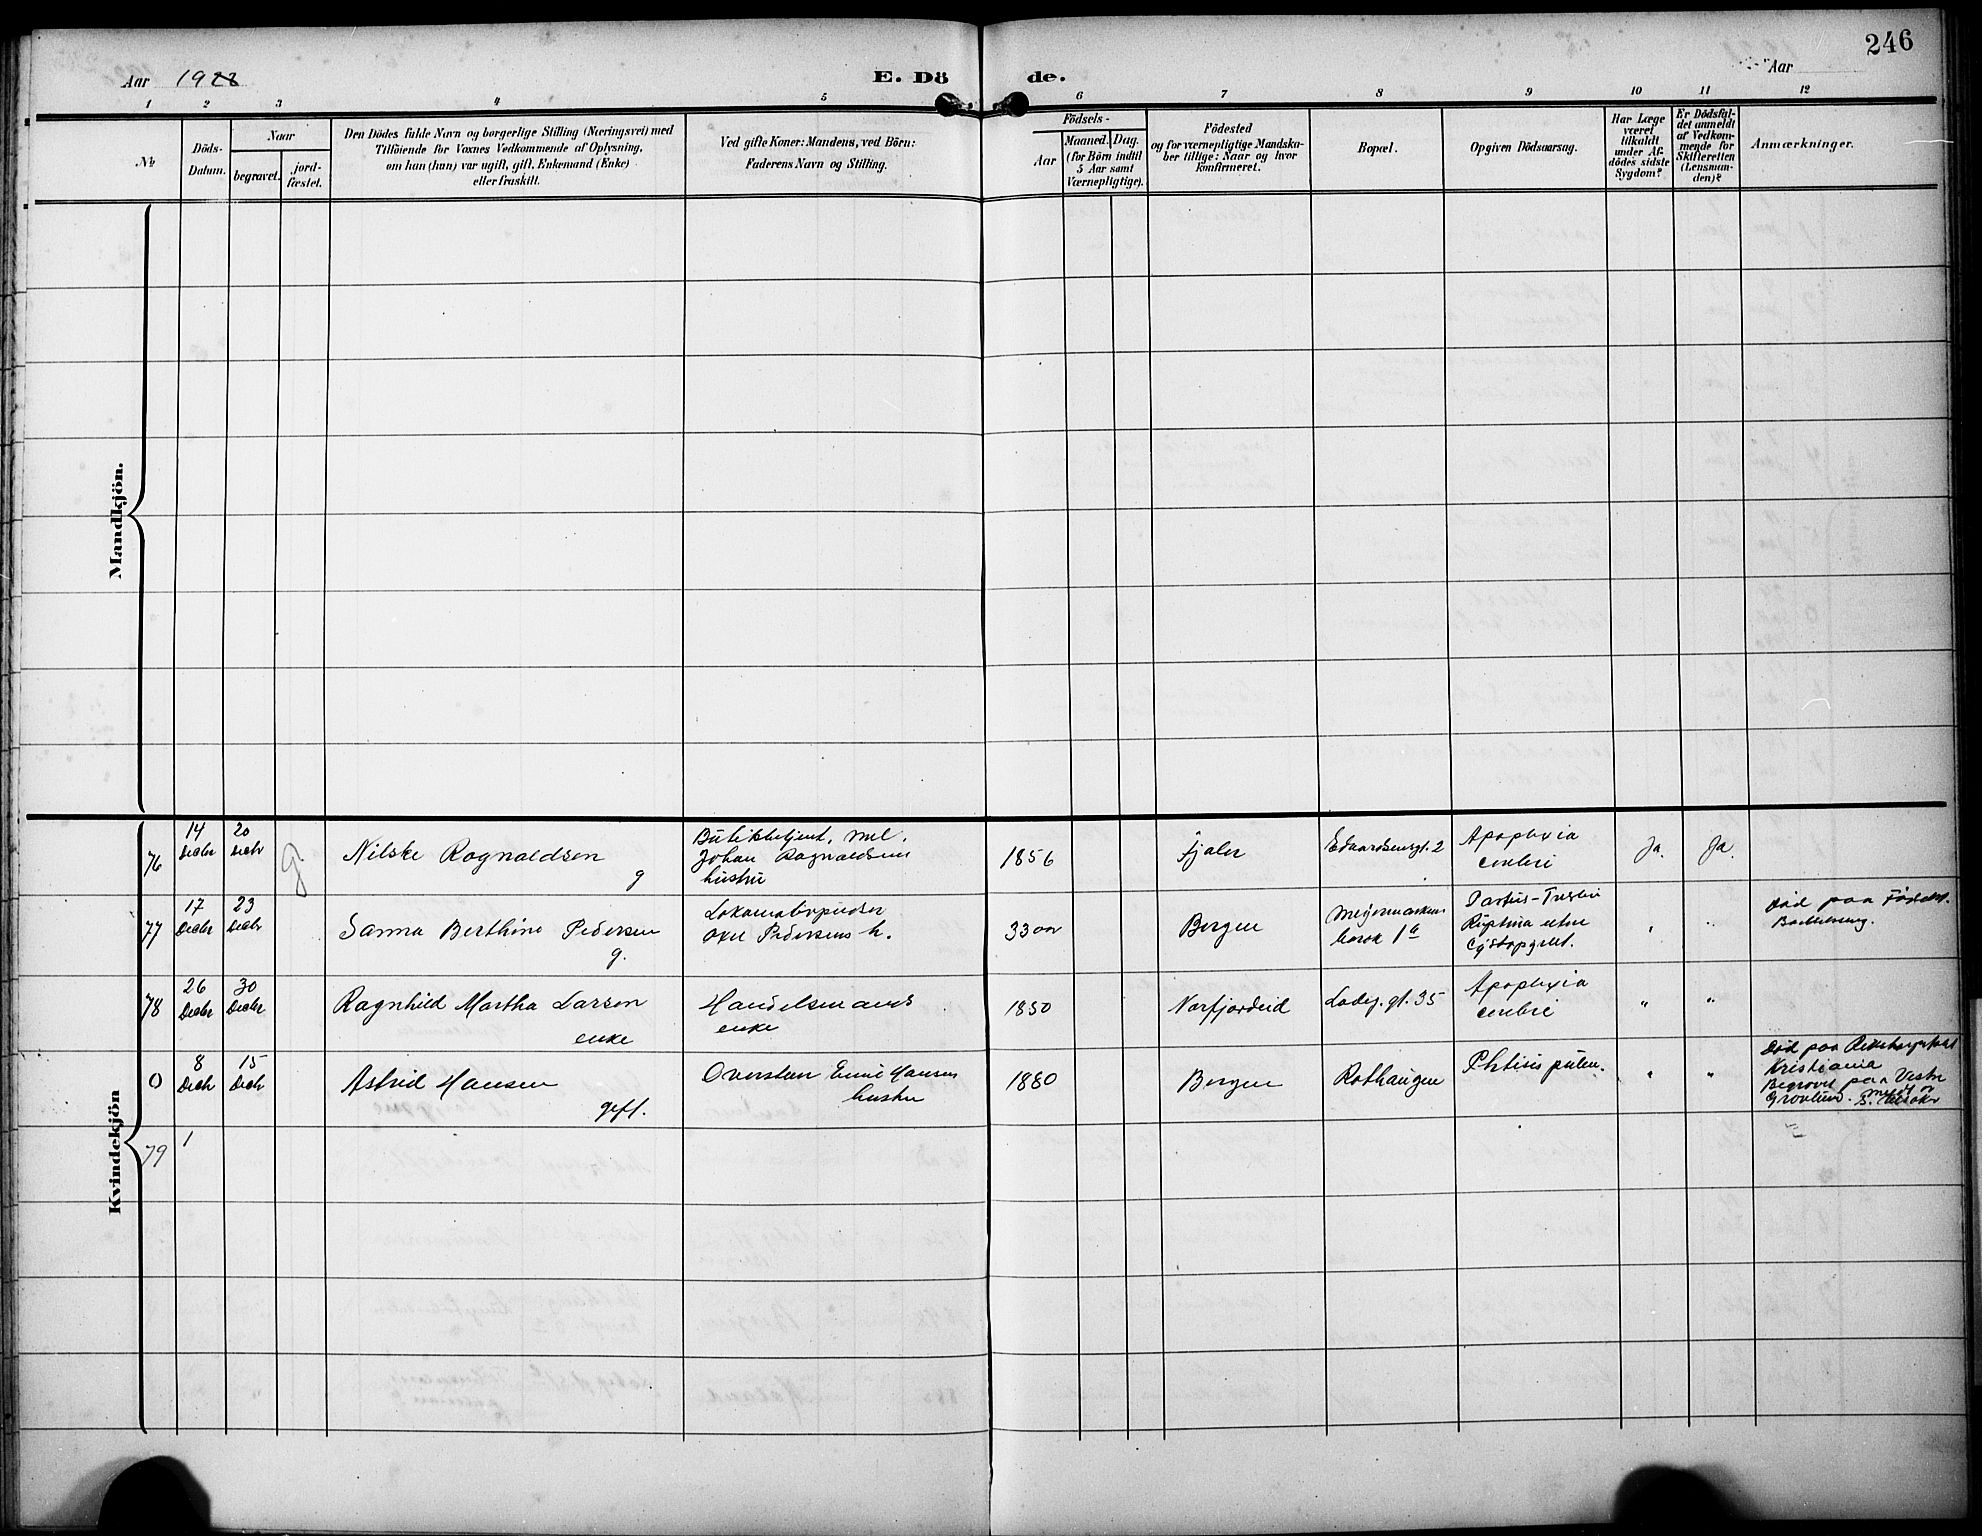 246
Aar 1923
E. Dö
de.
Aar
1 2 3 4 5 6 7 8 9 10 11 12
No
Döds-
Datum.
Naar
begravet.
jord-
fæstet.
Den Dödes fulde Navn og borgerlige Stilling (Næringsvei) med
Tilföiende for Voxnes Vedkommende af Oplysning,
om han (hun) var ugift, gift, Enkemand (Enke)
eller fraskilt.
Ved gifte Koner: Mandens, ved Börn:
Faderens Navn og Stilling.
Födsels-
Aar
Maaned. Dag.
(for Börn indtil
5 Aar samt
Værnepligtige).
Födested
og for værnepligtige Mandska-
ber tillige: Naar og hvor
konfirmeret.
Bopæl.
Opgiven Dödsaarsag.
Har Læge
været
tilkaldt
under Af-
dödes sidste
Sygdom?
Er Dödsfal-
det anmeldt
af Vedkom-
mende for
Skifteretten
(Lensman-
den)?
Anmærkninger.
Mandkjön.
Kvindekjön
76
14
Decbr
20
Decbr
g
Nilske Ragnaldsen
g
Butikbetjent.
Johan Ragnaldsens
hustru
1856
Fjaler
Edvardsensgt. 2
Apoplexia
cerebri
Ja.
Ja.
77
17
Decbr
23
Decbr
Sanna Berthine Pedersen
g.
Lokomotivpudser
Pedersens h.
33 aar
Bergen
1a
Partus -
Død paa Fødsels.
78
26
Decbr
30
Decbr
Ragnhild Martha Larsen
enke
Handelsmands
enke
1850
Norfjordeid
Ladeg. gt. 35
Apoplexia
cerebri
"
"
0
8
Decbr
15
Decbr
Astrid Hansen
gift.
Oversteen Hansen
hustru
1880
Bergen
Rothaugen
Phtisis pulm.
"
"
Død paa Rikshospital
Kristiania
Begravet paa Vestre
Gravlund.
79
1